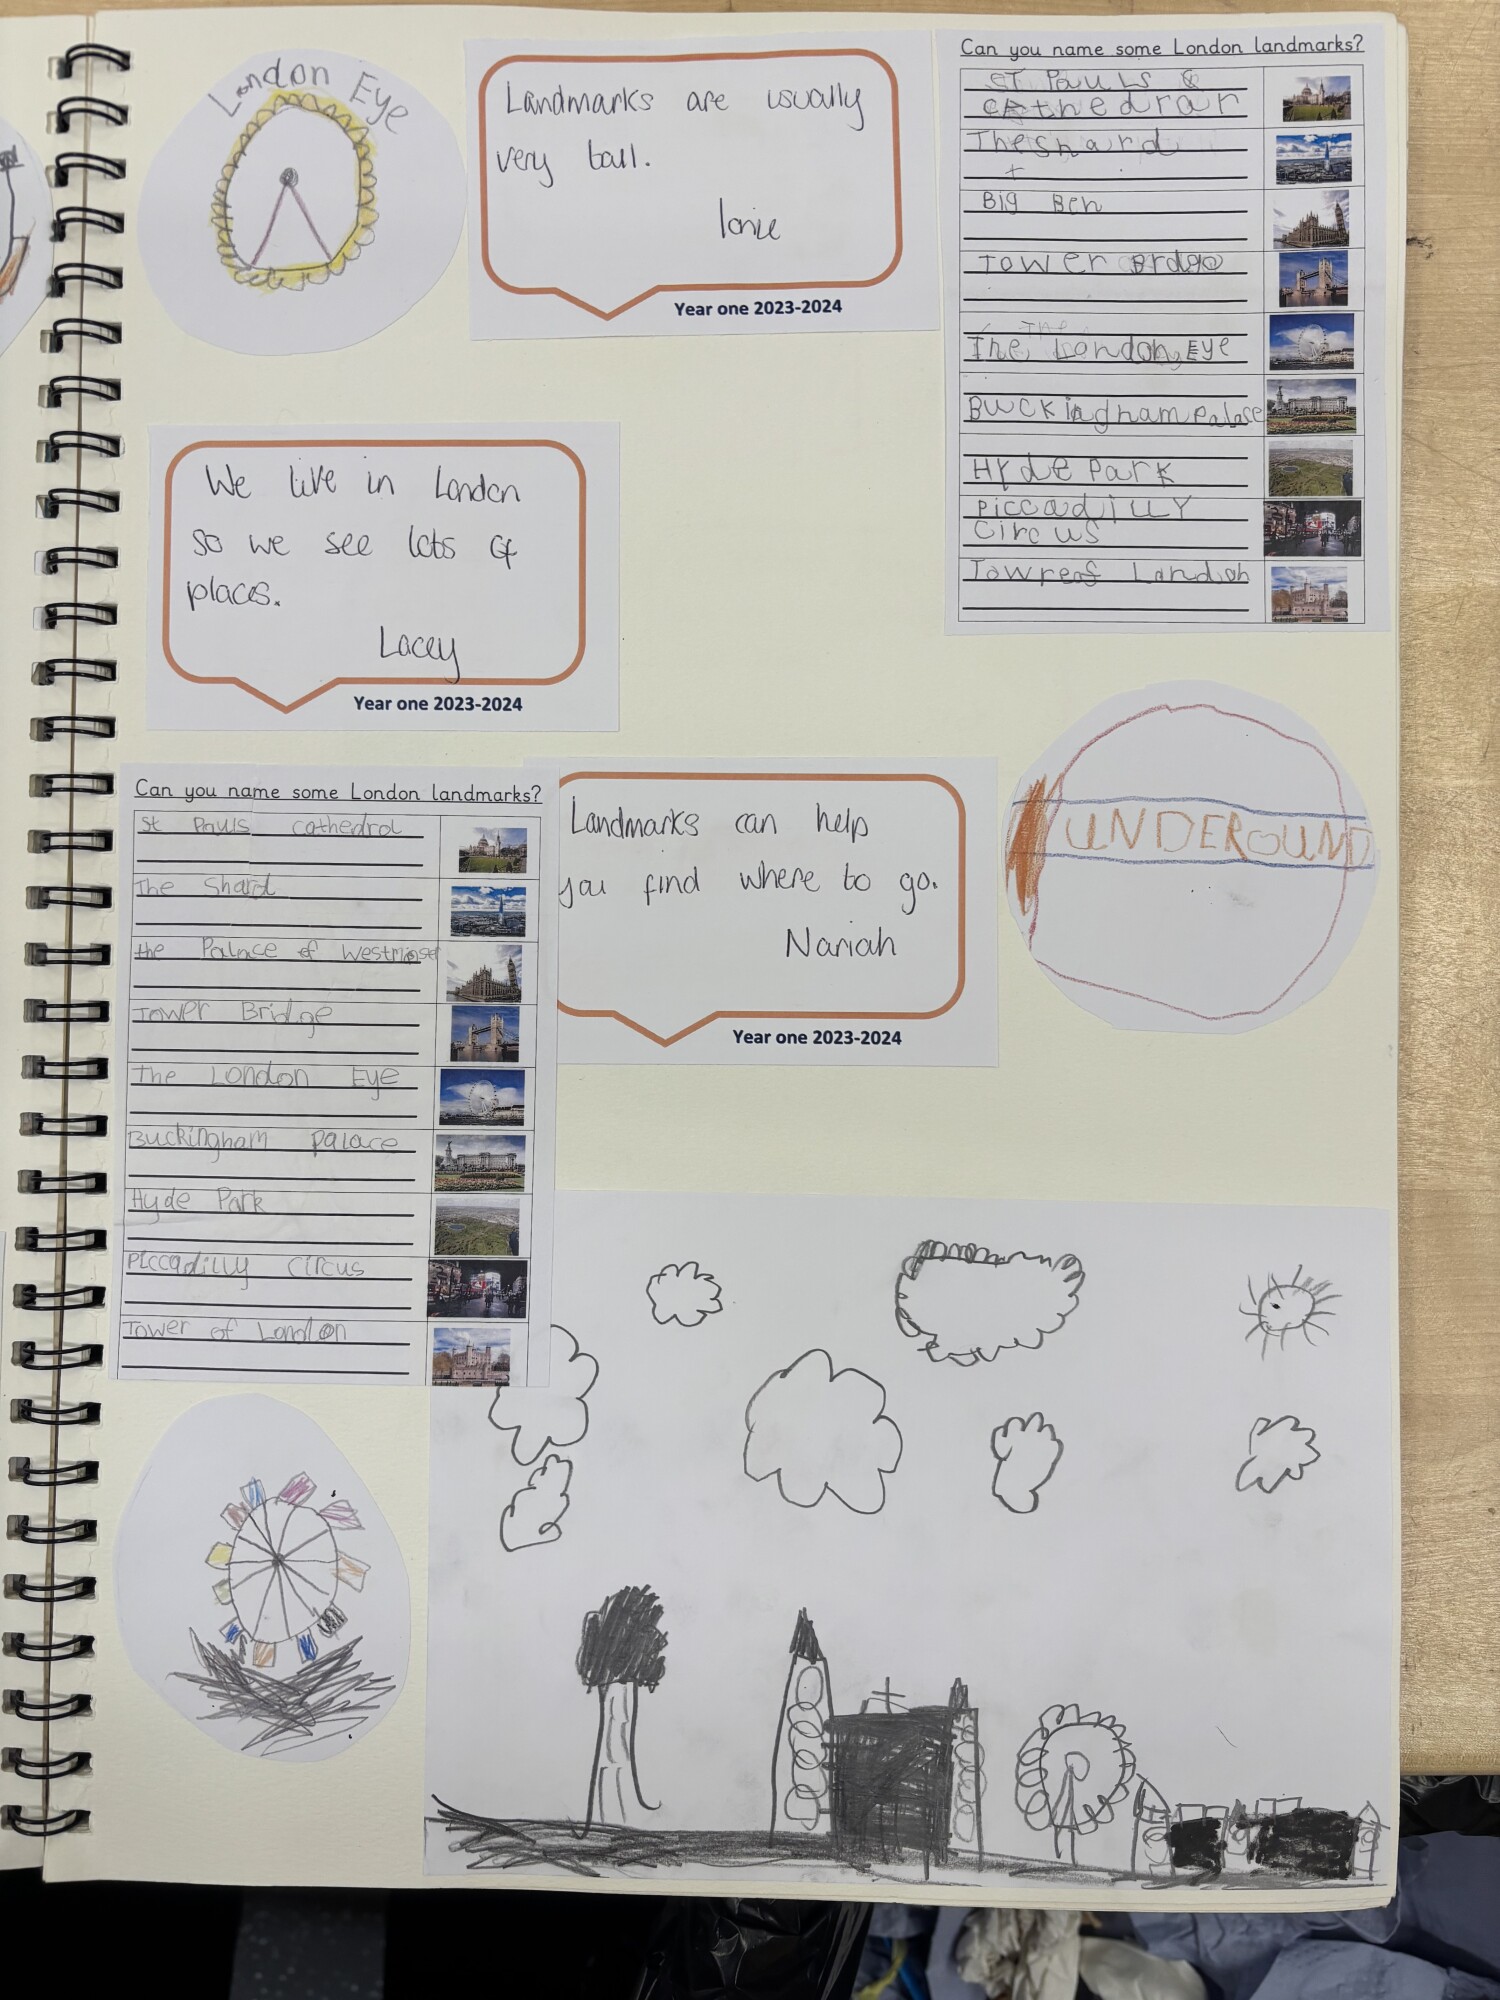 London Eye
Landmarks are usually
very tall.
Year one 2023-2024
Can you name some London landmarks?
ST PauLs &
cathedrar
The shard
Big Ben
Tower Brdge
The London Eye
Buckingham Palace
Hyde Park
Piccadilly
Circus
Towreof London
We live in London
so we see lots of
places.
Lacey
Year one 2023-2024
Can you name some London landmarks?
St Pauls cathedral
The Shard
the Palace of Westminster
Tower Bridge
The London Eye
Buckingham Palace
Hyde Park
Piccadilly circus
Tower of London
Landmarks can help
you find where to go.
Nariah
Year one 2023-2024
UNDEROUND